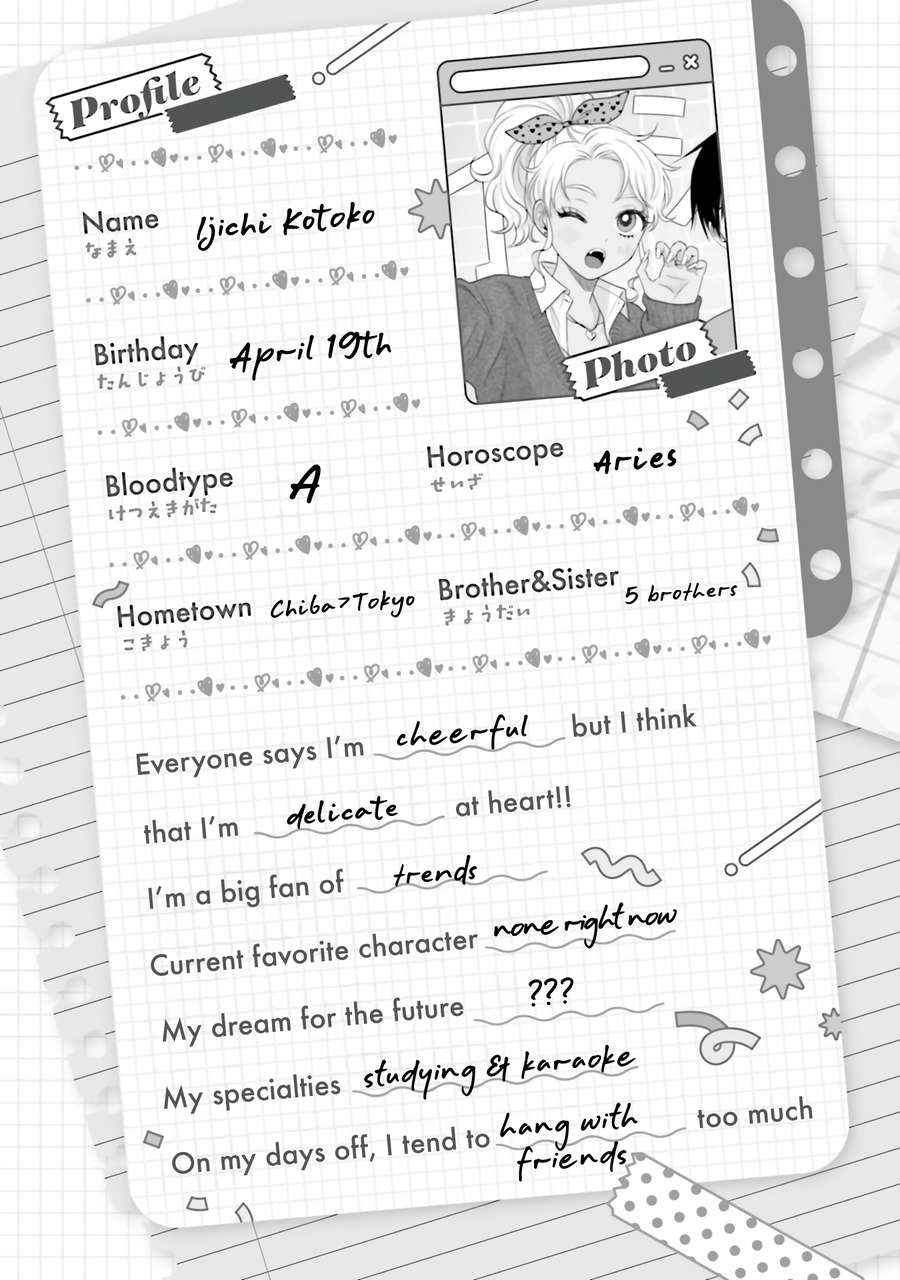 Profile
Name Ijichi Kotoko
なまえ
Birthday April 19th
たんじょうび
Photo
Bloodtype A
けつえきがた
Horoscope Aries
せいざ
Hometown Chiba>Tokyo
こきょう
Brother&Sister 5 brothers
きょうだい
Everyone says I'm cheerful but I think
that I'm delicate at heart!!
I'm a big fan of trends
Current favorite character none right now
My dream for the future ???
My specialties studying & karaoke
On my days off, I tend to hang with too much
friends